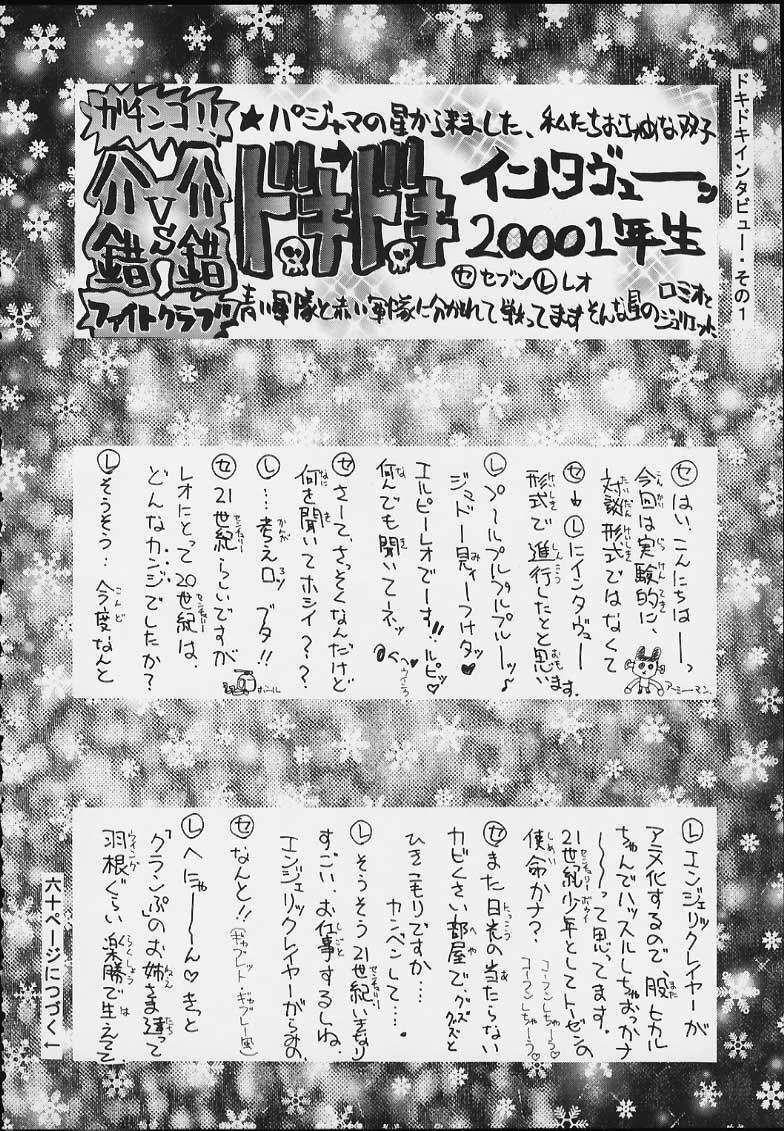 ドキドキインタビュー・その1
ガチンコ!!
介錯
VS
介錯
ファイトクラブッ
★パジャマの星から来ました、私たちおちゃめな双子
ドッキドッキ
インタヴューーッ
20001年生
セ セブン レ レオ
青い軍隊と赤い軍隊に分かれて戦ってます そんな冒の
ロミオと
ジュリエット
セ はい、こんにちはーーっ
今回は実験的に、
対談形式ではなくて
セ→レにインタヴュー
形式で進行したとと思います。
アーミーマン。
レ プ〜ルプルプルプルーーッ♪
ジュドー見ィーつけタッ♥
エルピーレオでーす!!ルピッ♡
何んでも聞いてーネッ
セ さーて、さっそくなんだけど
何を聞いてホシイ??
レ …考えロッ ブタ!!
セ 21世紀らしいですが
レオにとって20世紀は、
どんなカンジでしたか?
ボール
レ そうそう‥今度なんと
レ エンジェリックレイヤーが
アニメ化するので、股ヒカル
ちゃんでハッスルしちゃおっかナ
〜〜〜って思ってます。
21世紀少年としてトーゼンの
使命かナ?
コーフンしちゃーう♡
コーフンしちゃーう♡
セ また日光の当たらない
カビくさい部屋で、グズグズと
ひきこもりですか…
カンベンして…。
レ そうそう21世紀いきなり
すごい、お仕事するしね。
エンジェリックレイヤーがらみの
セ なんと!!(ギャブレット・ギャブレー風)
レ へにゃ〜〜ん♡きっと
「クランぷ」のお姉さま達って
羽根ぐらい楽勝で生えてて
六十ページにつづく←